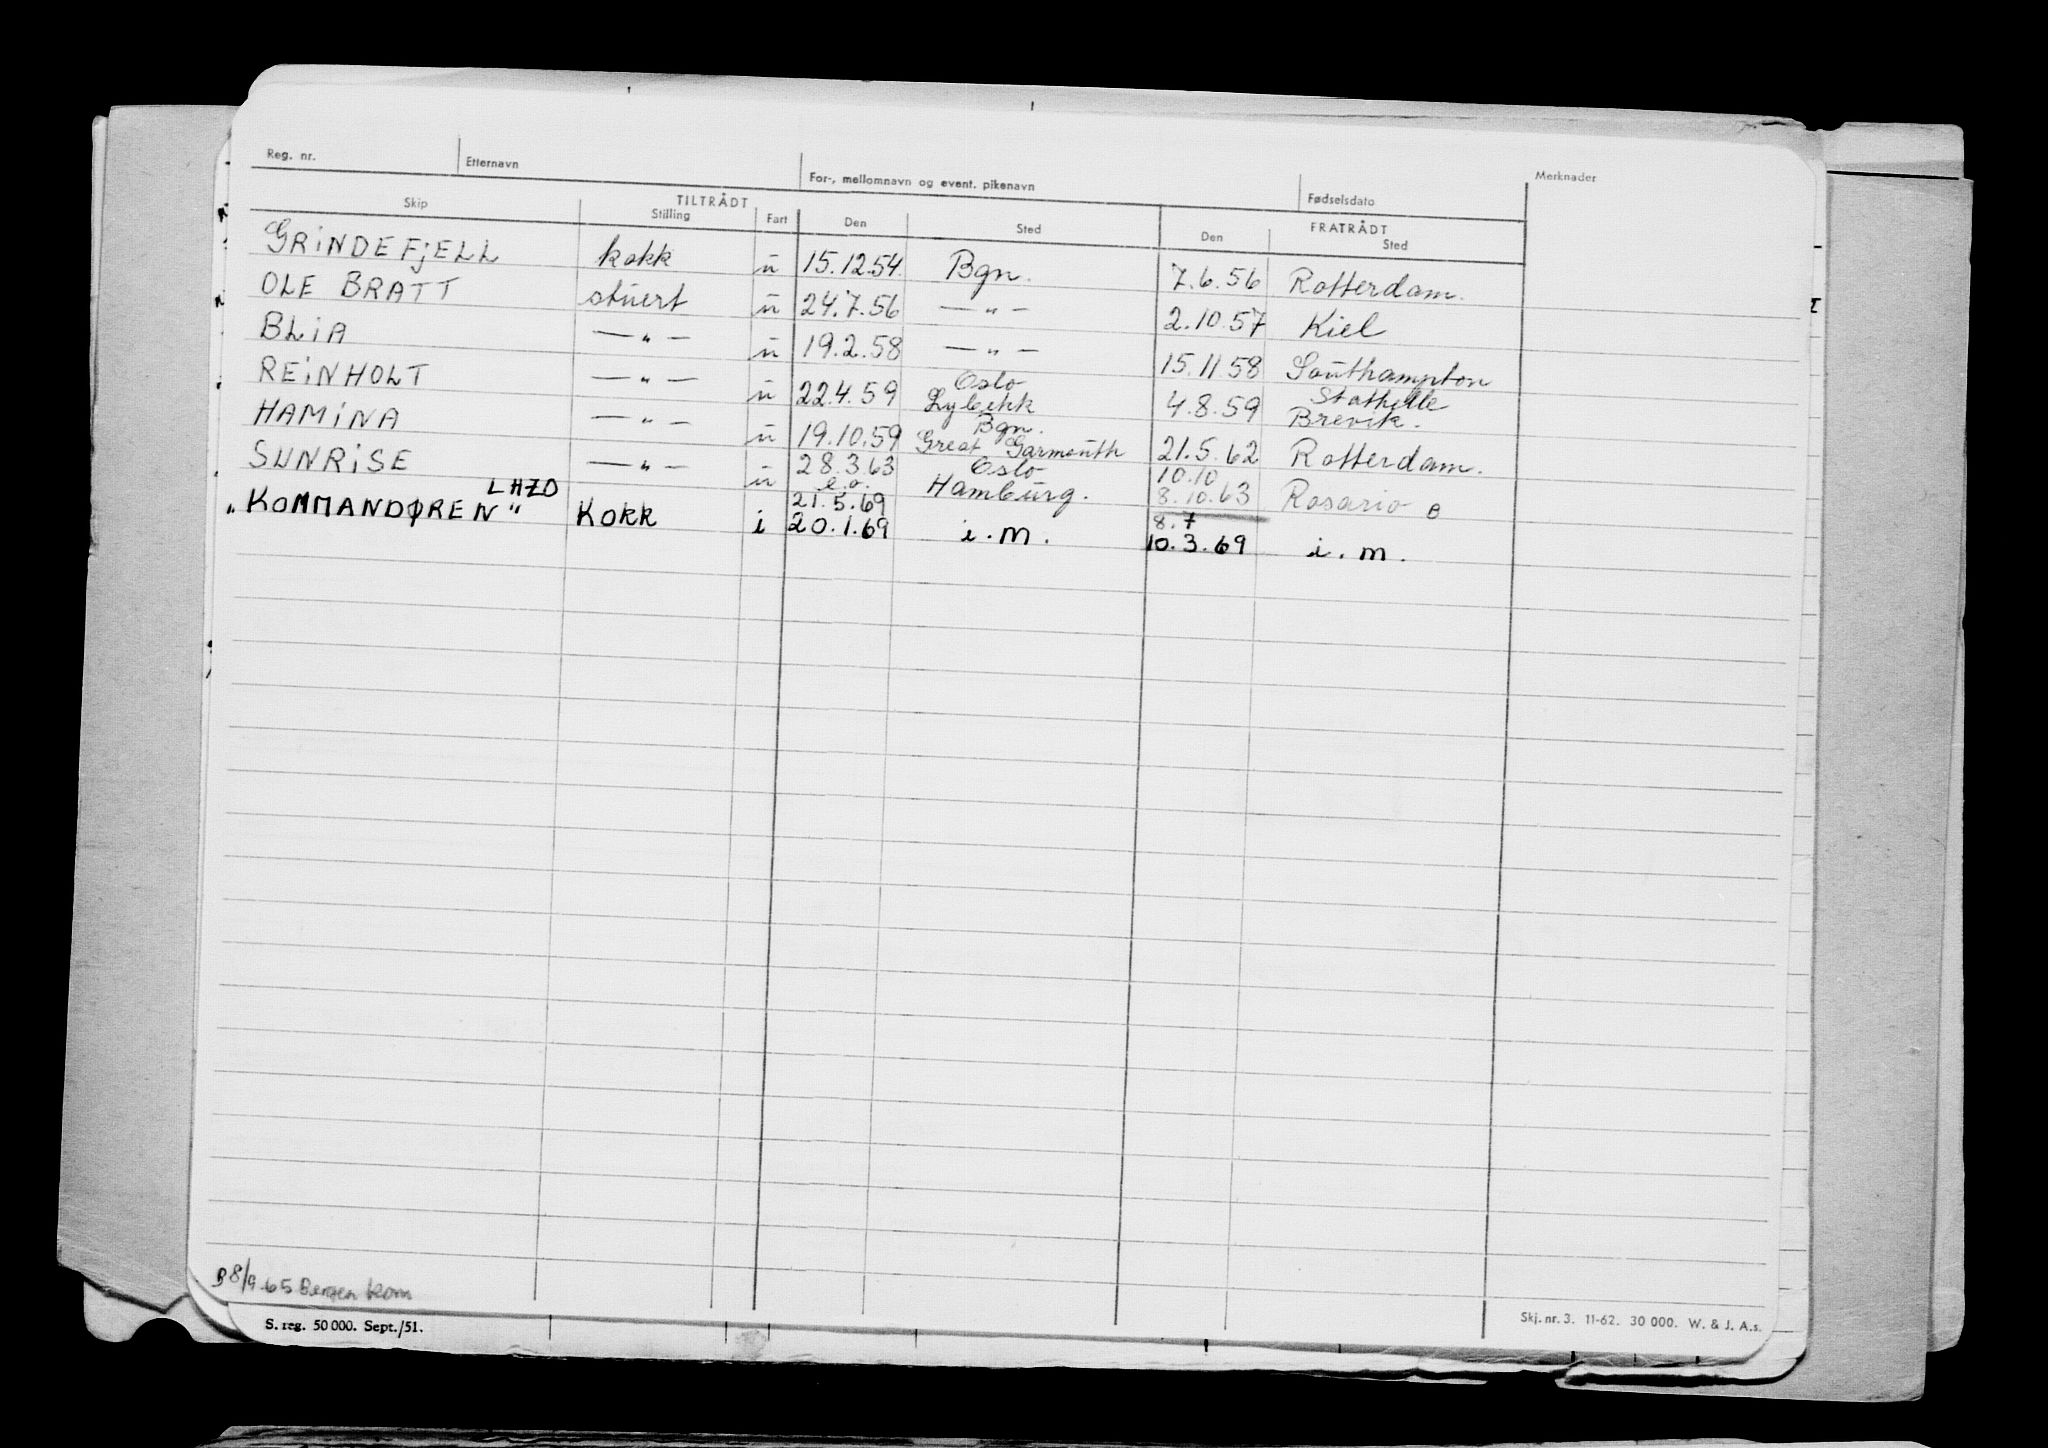 Reg. nr. Etternavn For-, mellomnavn og event. pikenavn Fødselsdato Merknader
TILTRÅDT FRATRÅDT
Skip Stilling Fart Den Sted Den Sted
GRINDEFJELL kokk u 15.12.54. Bgn. 7.6.56 Rotterdam.
OLE BRATT stuert u 24.7.56 — " — 2.10.57 Kiel
BLIA — " — u 19.2.58 — " — 15.11.58 Southampton
Oslo Stathelle
REINHOLT — " — u 22.4.59 Lybekk 4.8.59 Brevik.
Bgn.
HAMINA — " — u 19.10.59 Great Garmouth 21.5.62 Rotterdam.
28.3.63 Oslo 10.10
SUNRISE — " — u e.o. Hamburg. 8.10.63 Rosario B
LHZD 21.5.69 8.7
"KOMMANDØREN" Kokk i 20.1.69 i.m. 10.3.69 i.m.
B 8/9.65 Bergen kom
S. reg. 50 000. Sept./51.
Skj. nr. 3. 11-62. 30 000. W. & J. A.s.